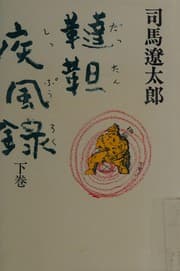 司馬遼太郎
韃靼
だったん
疾風録
しっぷうろく
下巻